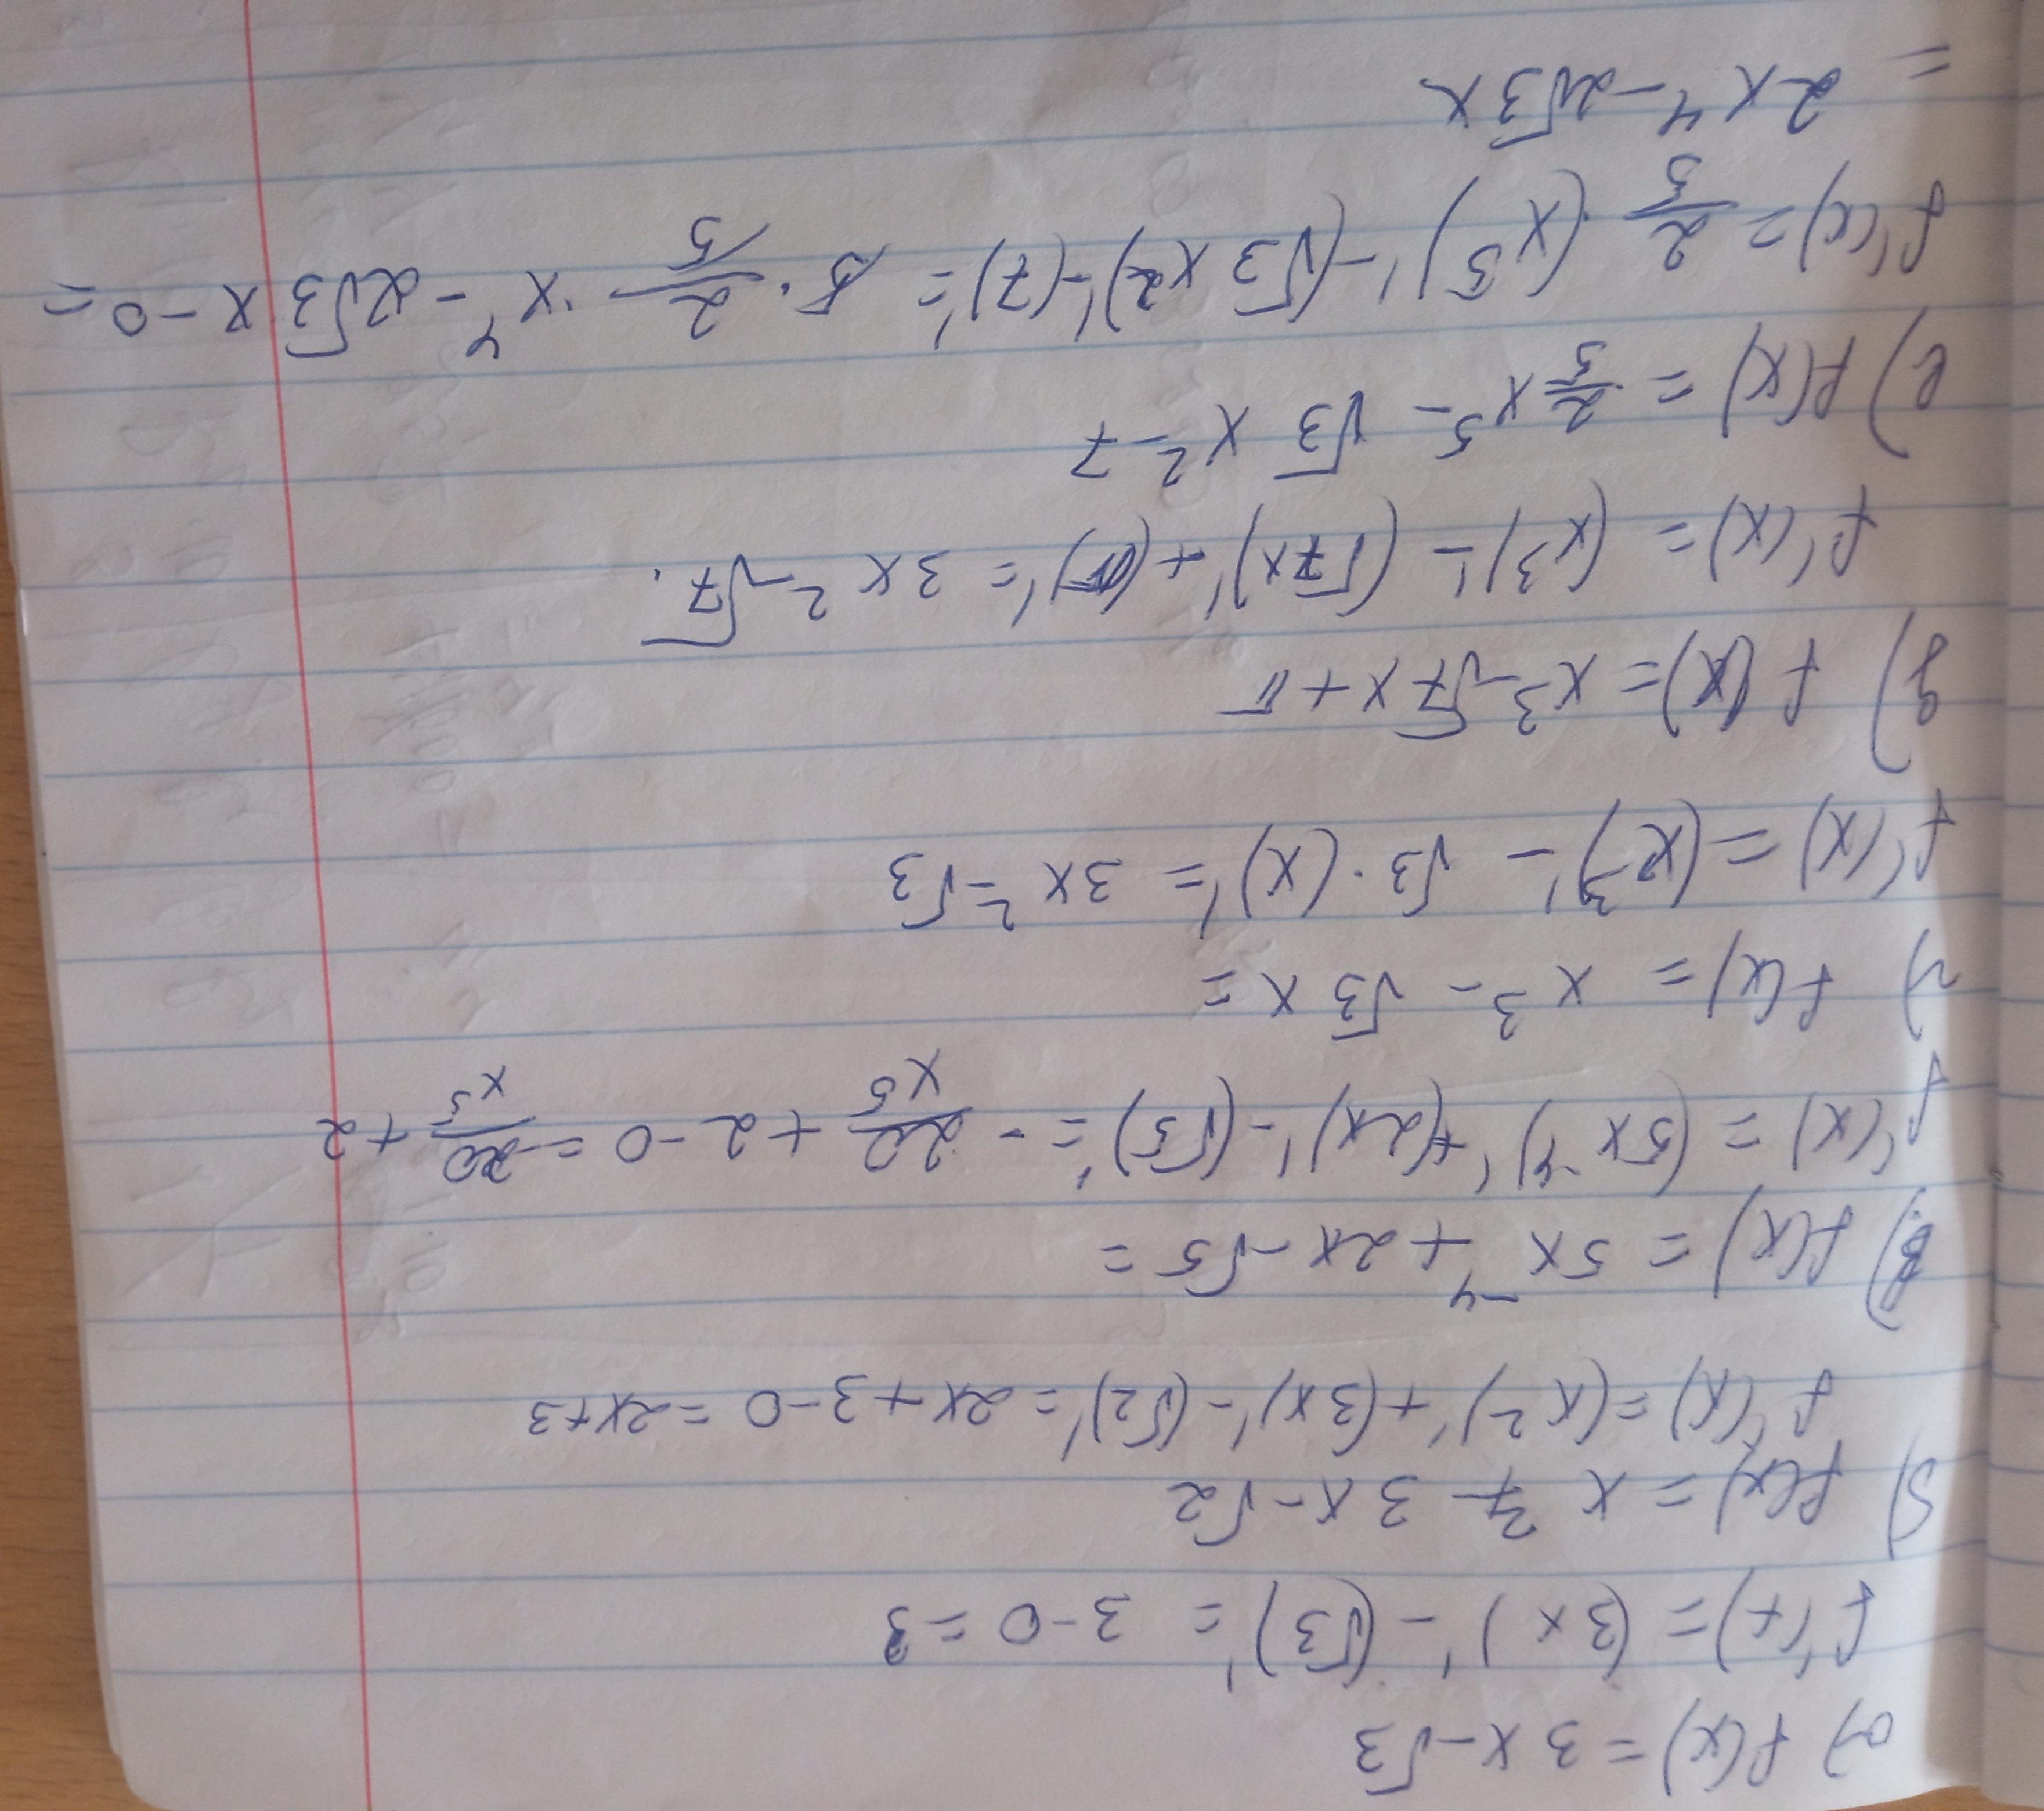 а) f(x) = 3x-√3
f'(x) = (3x)' - (√3)' = 3-0 = 3
б) f(x) = x² + 3x-√2
f'(x) = (x²)' + (3x)' - (√2)' = 2x+3-0 = 2x+3
в) f(x) = 5x⁻⁴ + 2x-√5 =
f'(x) = (5x⁻⁴)' + (2x)' - (√5)' = - 20/x⁵ + 2-0 = -20/x⁵ + 2
г) f(x) = x³ - √3 x =
f'(x) = (x³)' - √3 · (x)' = 3x² - √3
д) f(x) = x³ - √7 x + π
f'(x) = (x³)' - (√7x)' + (π)' = 3x² - √7.
е) f(x) = 2/5 x⁵ - √3 x² - 7
f'(x) = 2/5 · (x⁵)' - (√3 x²)' - (7)' = 5 · 2/5 · x⁴ - 2√3 x - 0 =
= 2x⁴ - 2√3 x